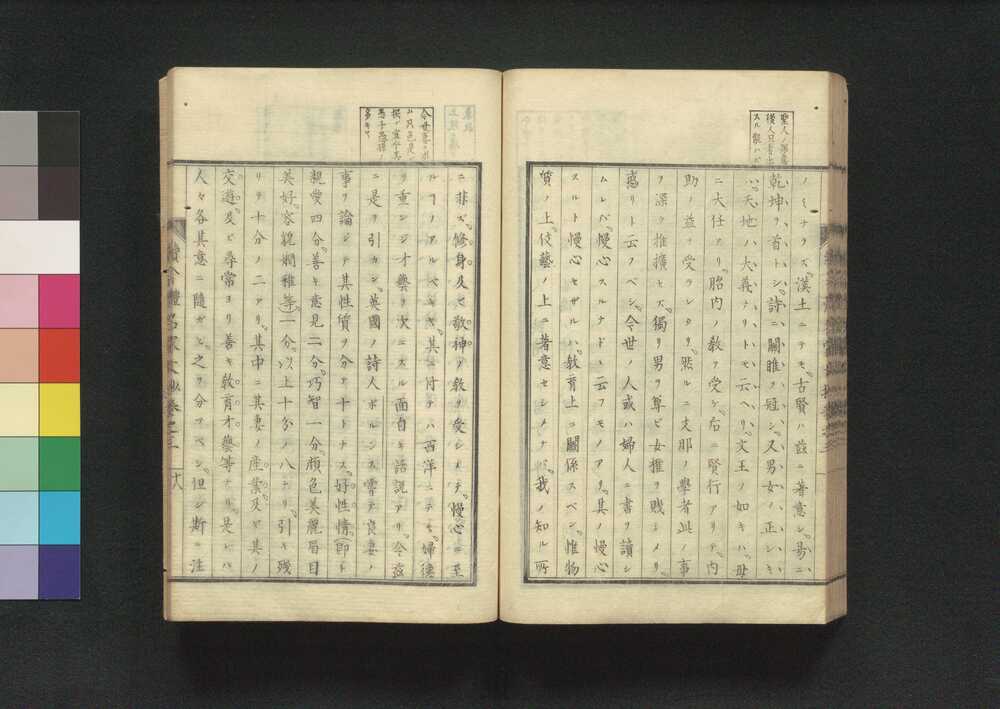 ノミナラズ漢土ニテモ古賢ハ玆ニ著意シ易ニ
乾坤ヲ首トシ詩ニ關睢ヲ冠シ又男女ノ正シキ
ハ天地ノ大義ナリトモ云ヘリ文王ノ如キハ母
ニ大任アリ胎内ノ敎ヲ受ケ后ニ賢行アリテ内
助ノ益ヲ受ラレタリ然ルニ支那ノ學者此ノ事
ヲ深ク推擴セズ獨リ男ヲ尊ビ女權ヲ賤シメリ
惑リト云フベシ今世ノ人或ハ婦人ニ書ヲ讀シ
ムレバ慢心スルナドヽ云フモノアリ其ノ慢心
スルト慢心セザルハ敎育上ニ關係スベシ惟物
質ノ上伎藝ノ上ニ著意セシメナバ我ノ知ル所
ニ非ズ修身及ビ敬神ノ敎ヲ受シメテ慢心ニ至
ルヿノアルベキヤ其ニ付テハ西洋ニテモ婦德
ヲ重ンジオ藝ヲ次ニスル面白キ話説アリ今玆
ニ是ヲ引カン英國ノ詩人ボルンス嘗テ良妻ノ
事ヲ論ジテ其性質ヲ分テ十トナス好性情(即チ
親愛四分善キ意見二分巧智一分顔色美麗眉目
美好容貌嫻雅等一分以上十分ノ八ナリ引キ殘
リテ十分ノ二アリ其中ニ其妻ノ産業及ビ其ノ
交遊及ビ尋常ヨリ善キ敎育才藝等ナリ是レハ
人々各其意ニ隨ガヒ之ヲ分アベシ但シ斯ニ注